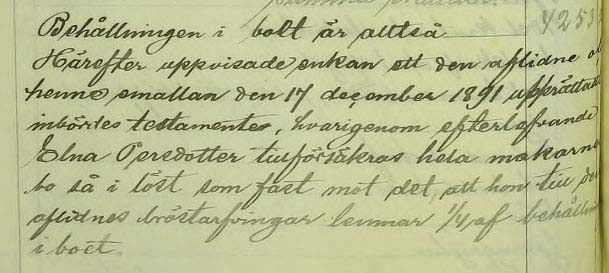 Behållningen i bolt är alltså
4253
Härefter uppvisade enkan ett den aflidne o
henne emallan den 17 december 1891 upprättade
inbördes testamente, hvarigenom efterlefvande
Elna Persdotter tillförsäkras hela makarne
bo så i löst som fast mot det, att hon till de
aflidnes bröstarfvingar lemnar 1/4 af behålln
i boet.